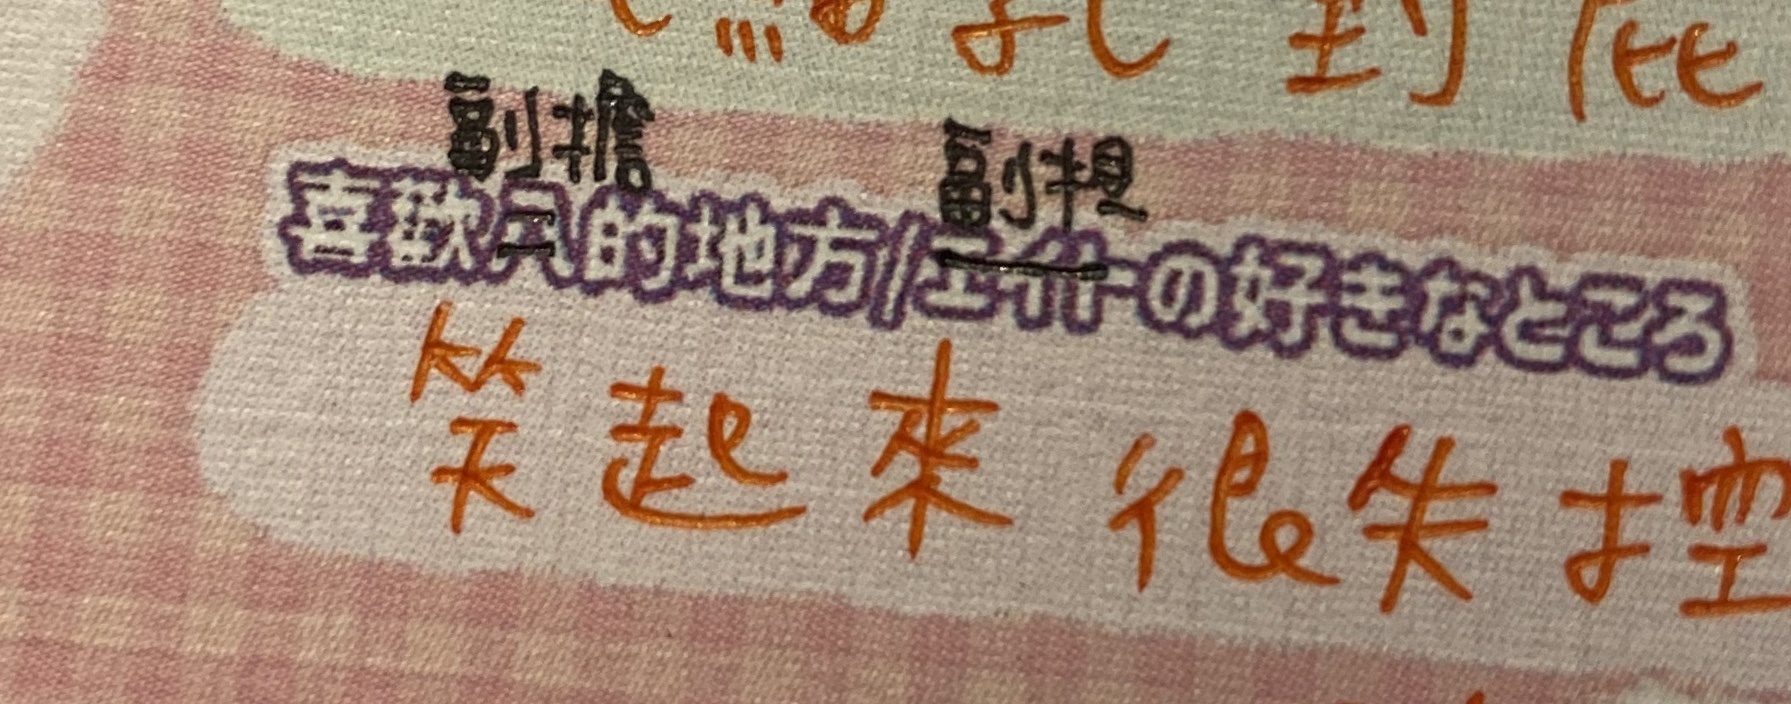 到
副擔 副担
喜歡八的地方/エイトの好きなところ
笑起來很失控